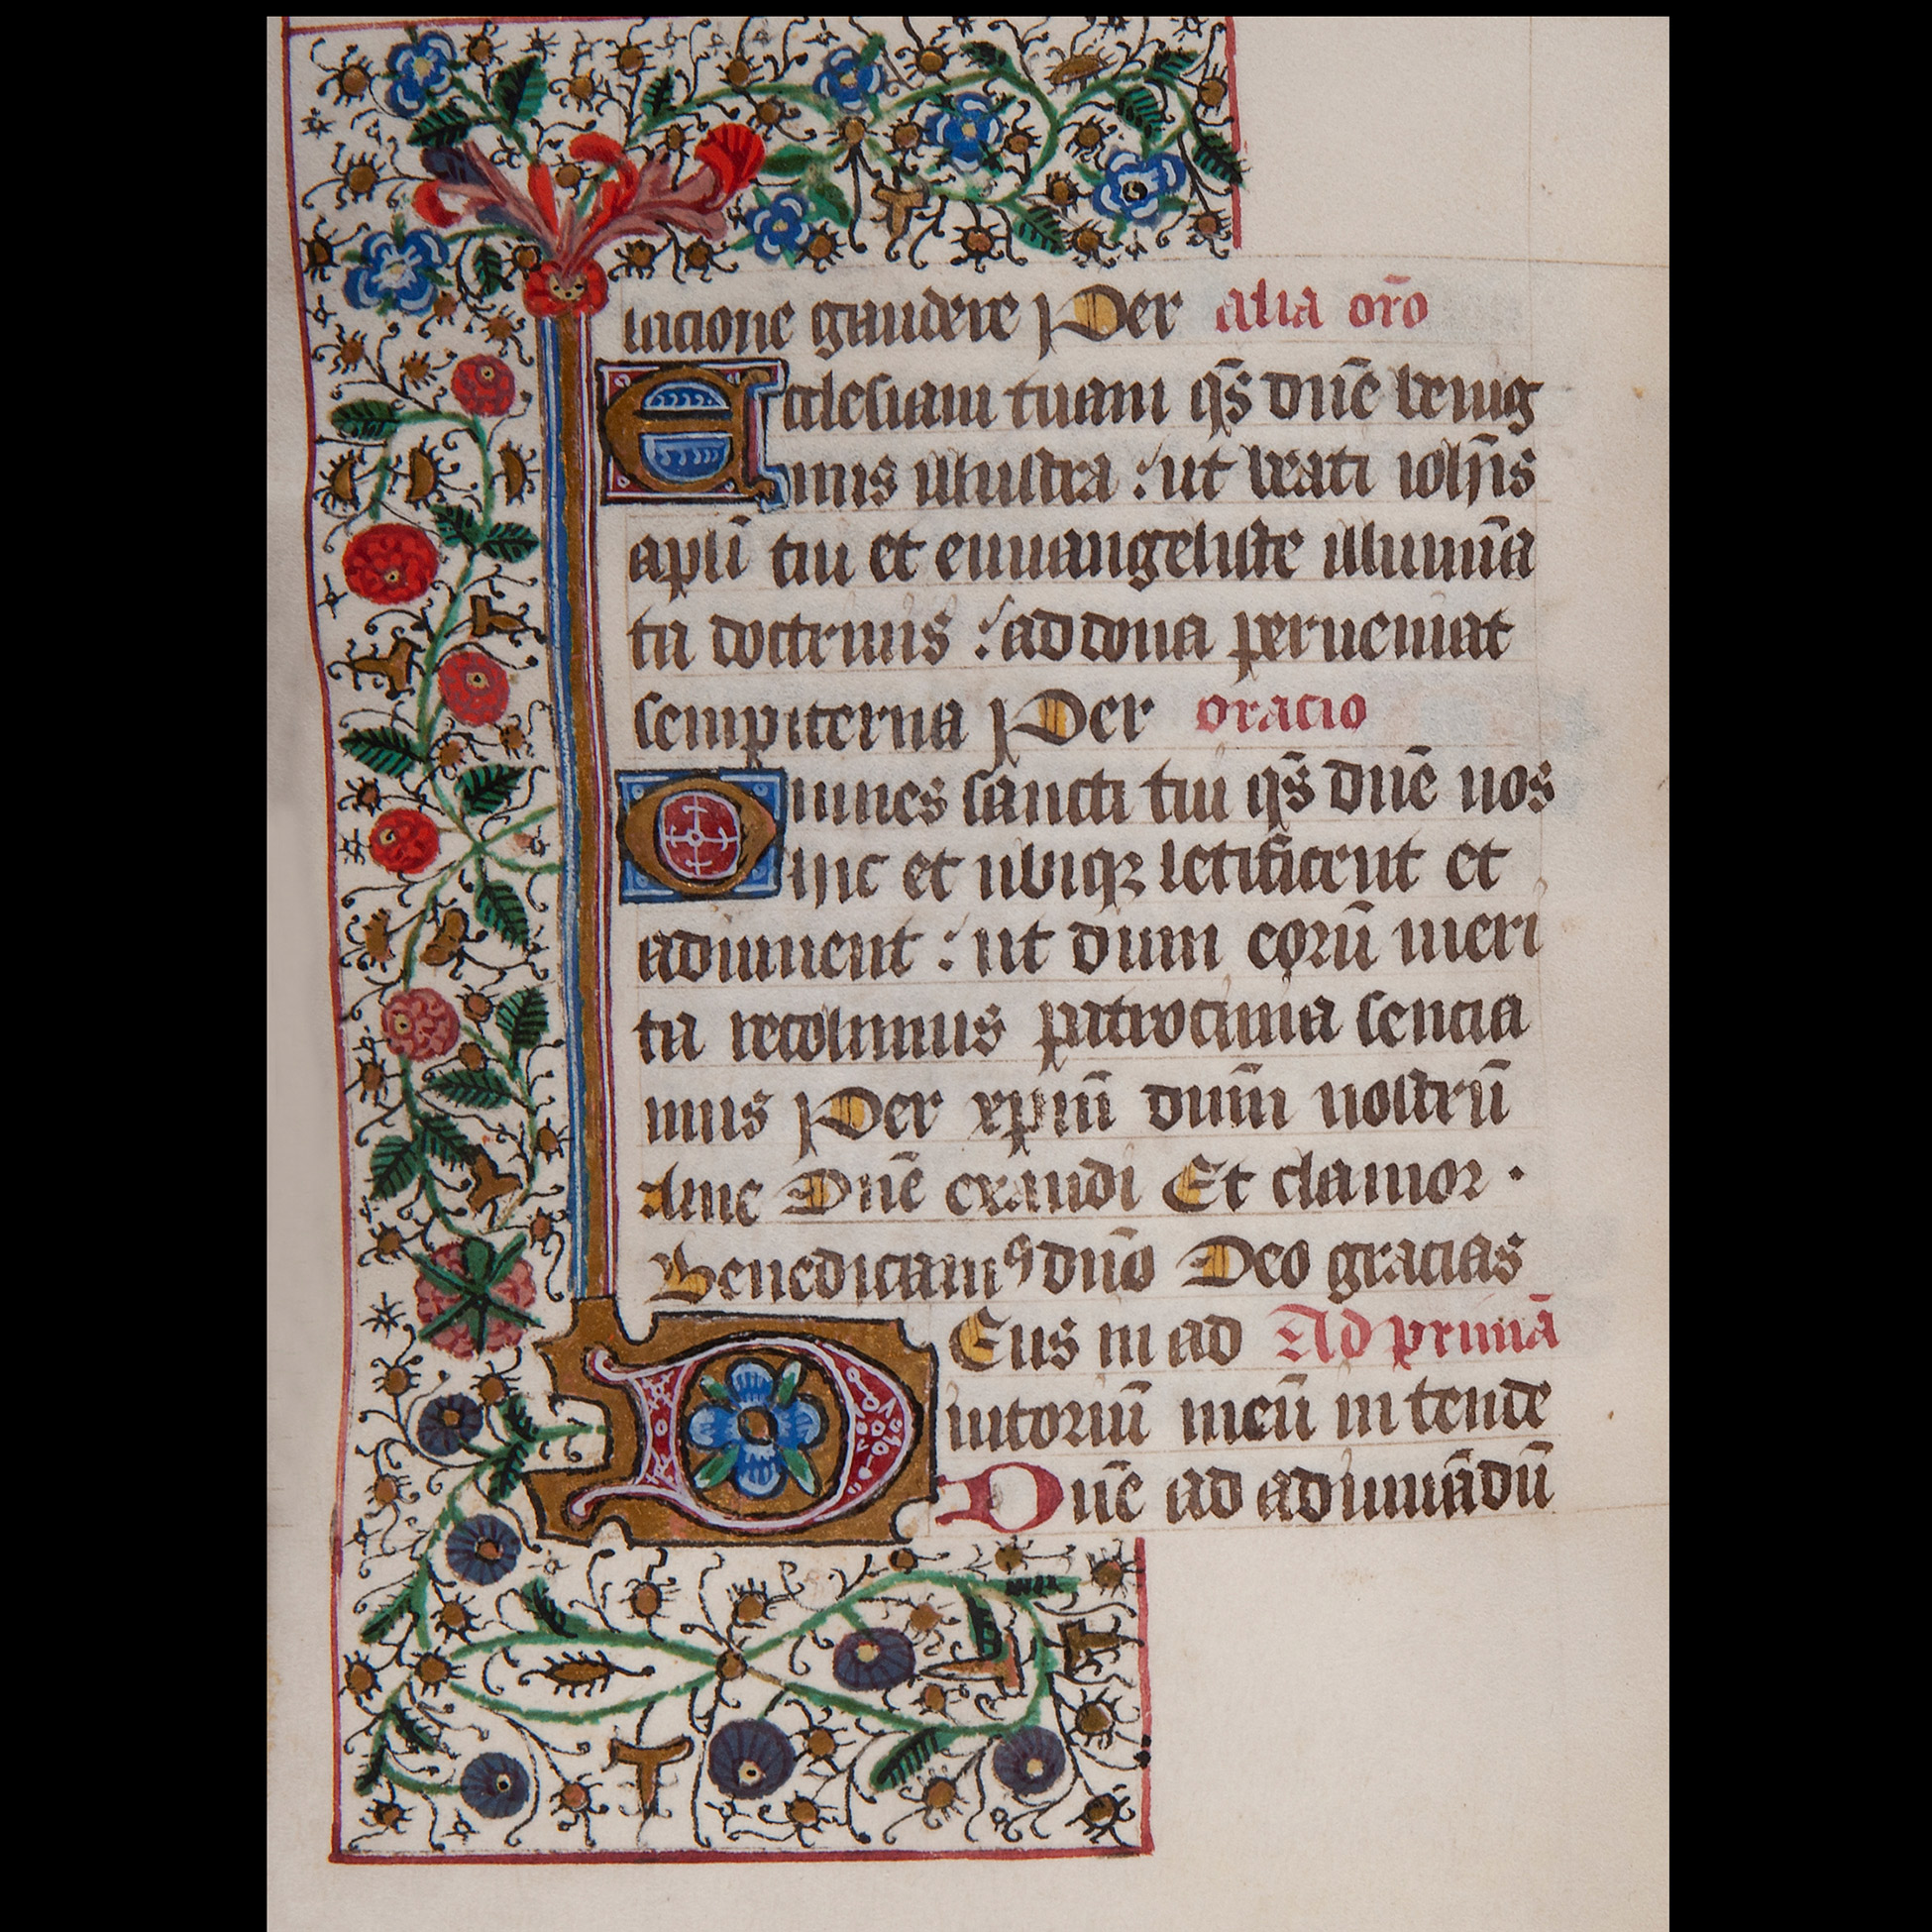 lacione gaudere Per alia orō
Ecclesiam tuam q̄s dn̄e benig
nus illustra : ut beati ioh̄is
apl̄i tui et euuangeliste illumīa
ta doctrinis : ad dona perueniat
sempiterna Per oracio
Omnes sancti tui q̄s dn̄e nos
hic et ubiqꝫ letificent et
adiuuent : ut dum eorū meri
ta recolimus patrocinia sencia
mus Per xp̄m dn̄m nostrū
Ame Dn̄e exaudi Et clamor ·
Benedicamꝰ dn̄o Deo gracias
DEus in ad Ad primā
iutoriū meū in tende
Dn̄e ad adiuuādū